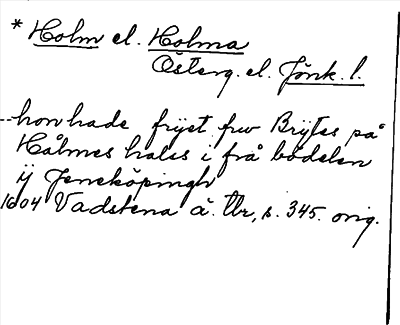 * Holm el. Holma
Österg. el. Jönk. l.
--hon hade frijet frw Brijtes på
Hålmes hales i frå bödelen
ij Jeneköpingh
1604 Vadstena ä. Tbr, s. 345. orig.